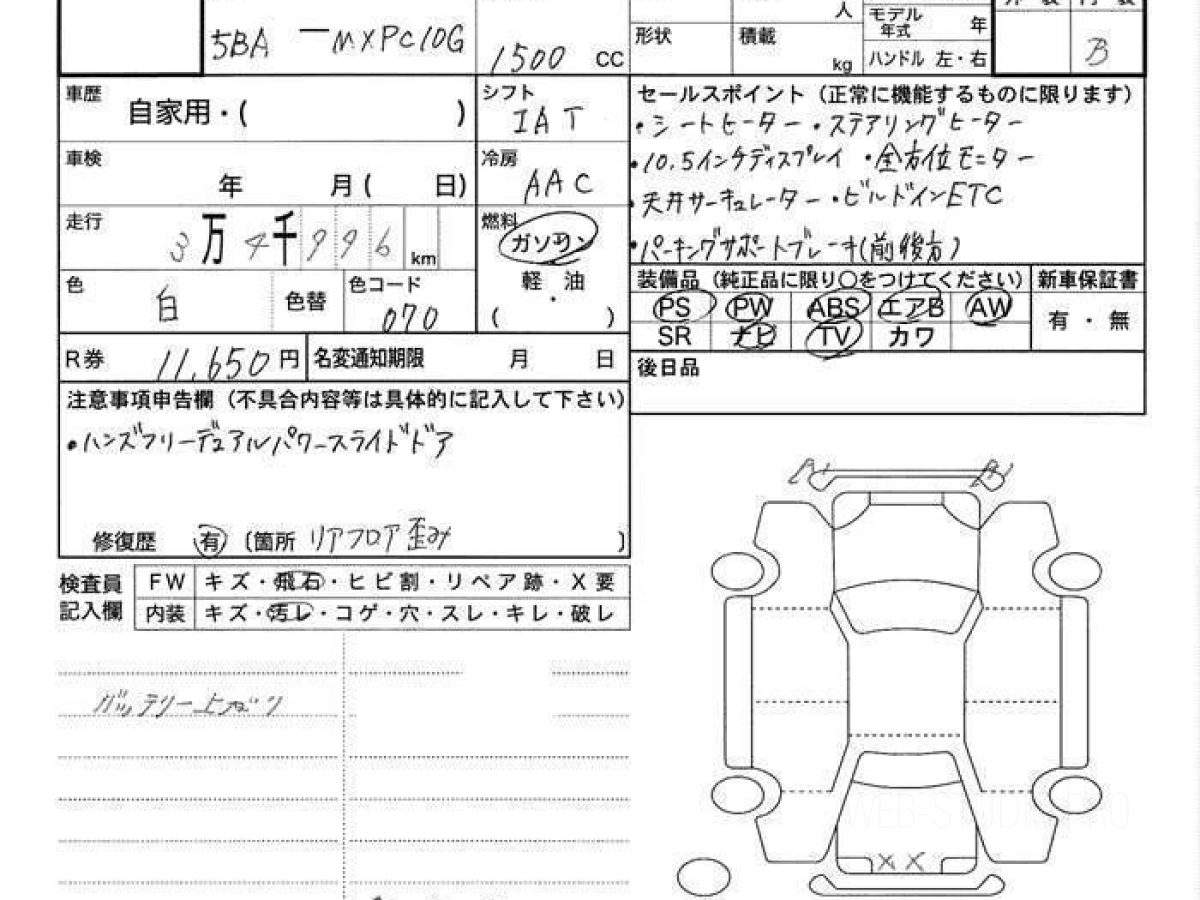 人 モデル年式 年
5BA-MXPC10G 1500 cc 形状 積載 kg ハンドル 左・右 B
車歴 自家用・( ) シフト IAT
車検 年 月( 日) 冷房 AAC
走行 3万4千996km 燃料 ガソリン
軽・油
( )
色 白 色替 色コード 070
R券 11,650円 名変通知期限 月 日
セールスポイント(正常に機能するものに限ります)
・シートヒーター・ステアリングヒーター
・10.5インチディスプレイ・全方位モニター
・天井サーキュレーター・ビルドインETC
・パーキングサポートブレーキ(前後方)
装備品(純正品に限り○をつけてください) 新車保証書
PS PW ABS エアB AW 有・無
SR ナビ TV カワ
後日品
注意事項申告欄(不具合内容等は具体的に記入して下さい)
・ハンズフリーデュアルパワースライドドア
修復歴 有 〔箇所 リアフロア歪み 〕
検査員記入欄 FW キズ・飛石・ヒビ割・リペア跡・X要
内装 キズ・汚レ・コゲ・穴・スレ・キレ・破レ
A1 A1
XX
WEB-STUDIO.PRO